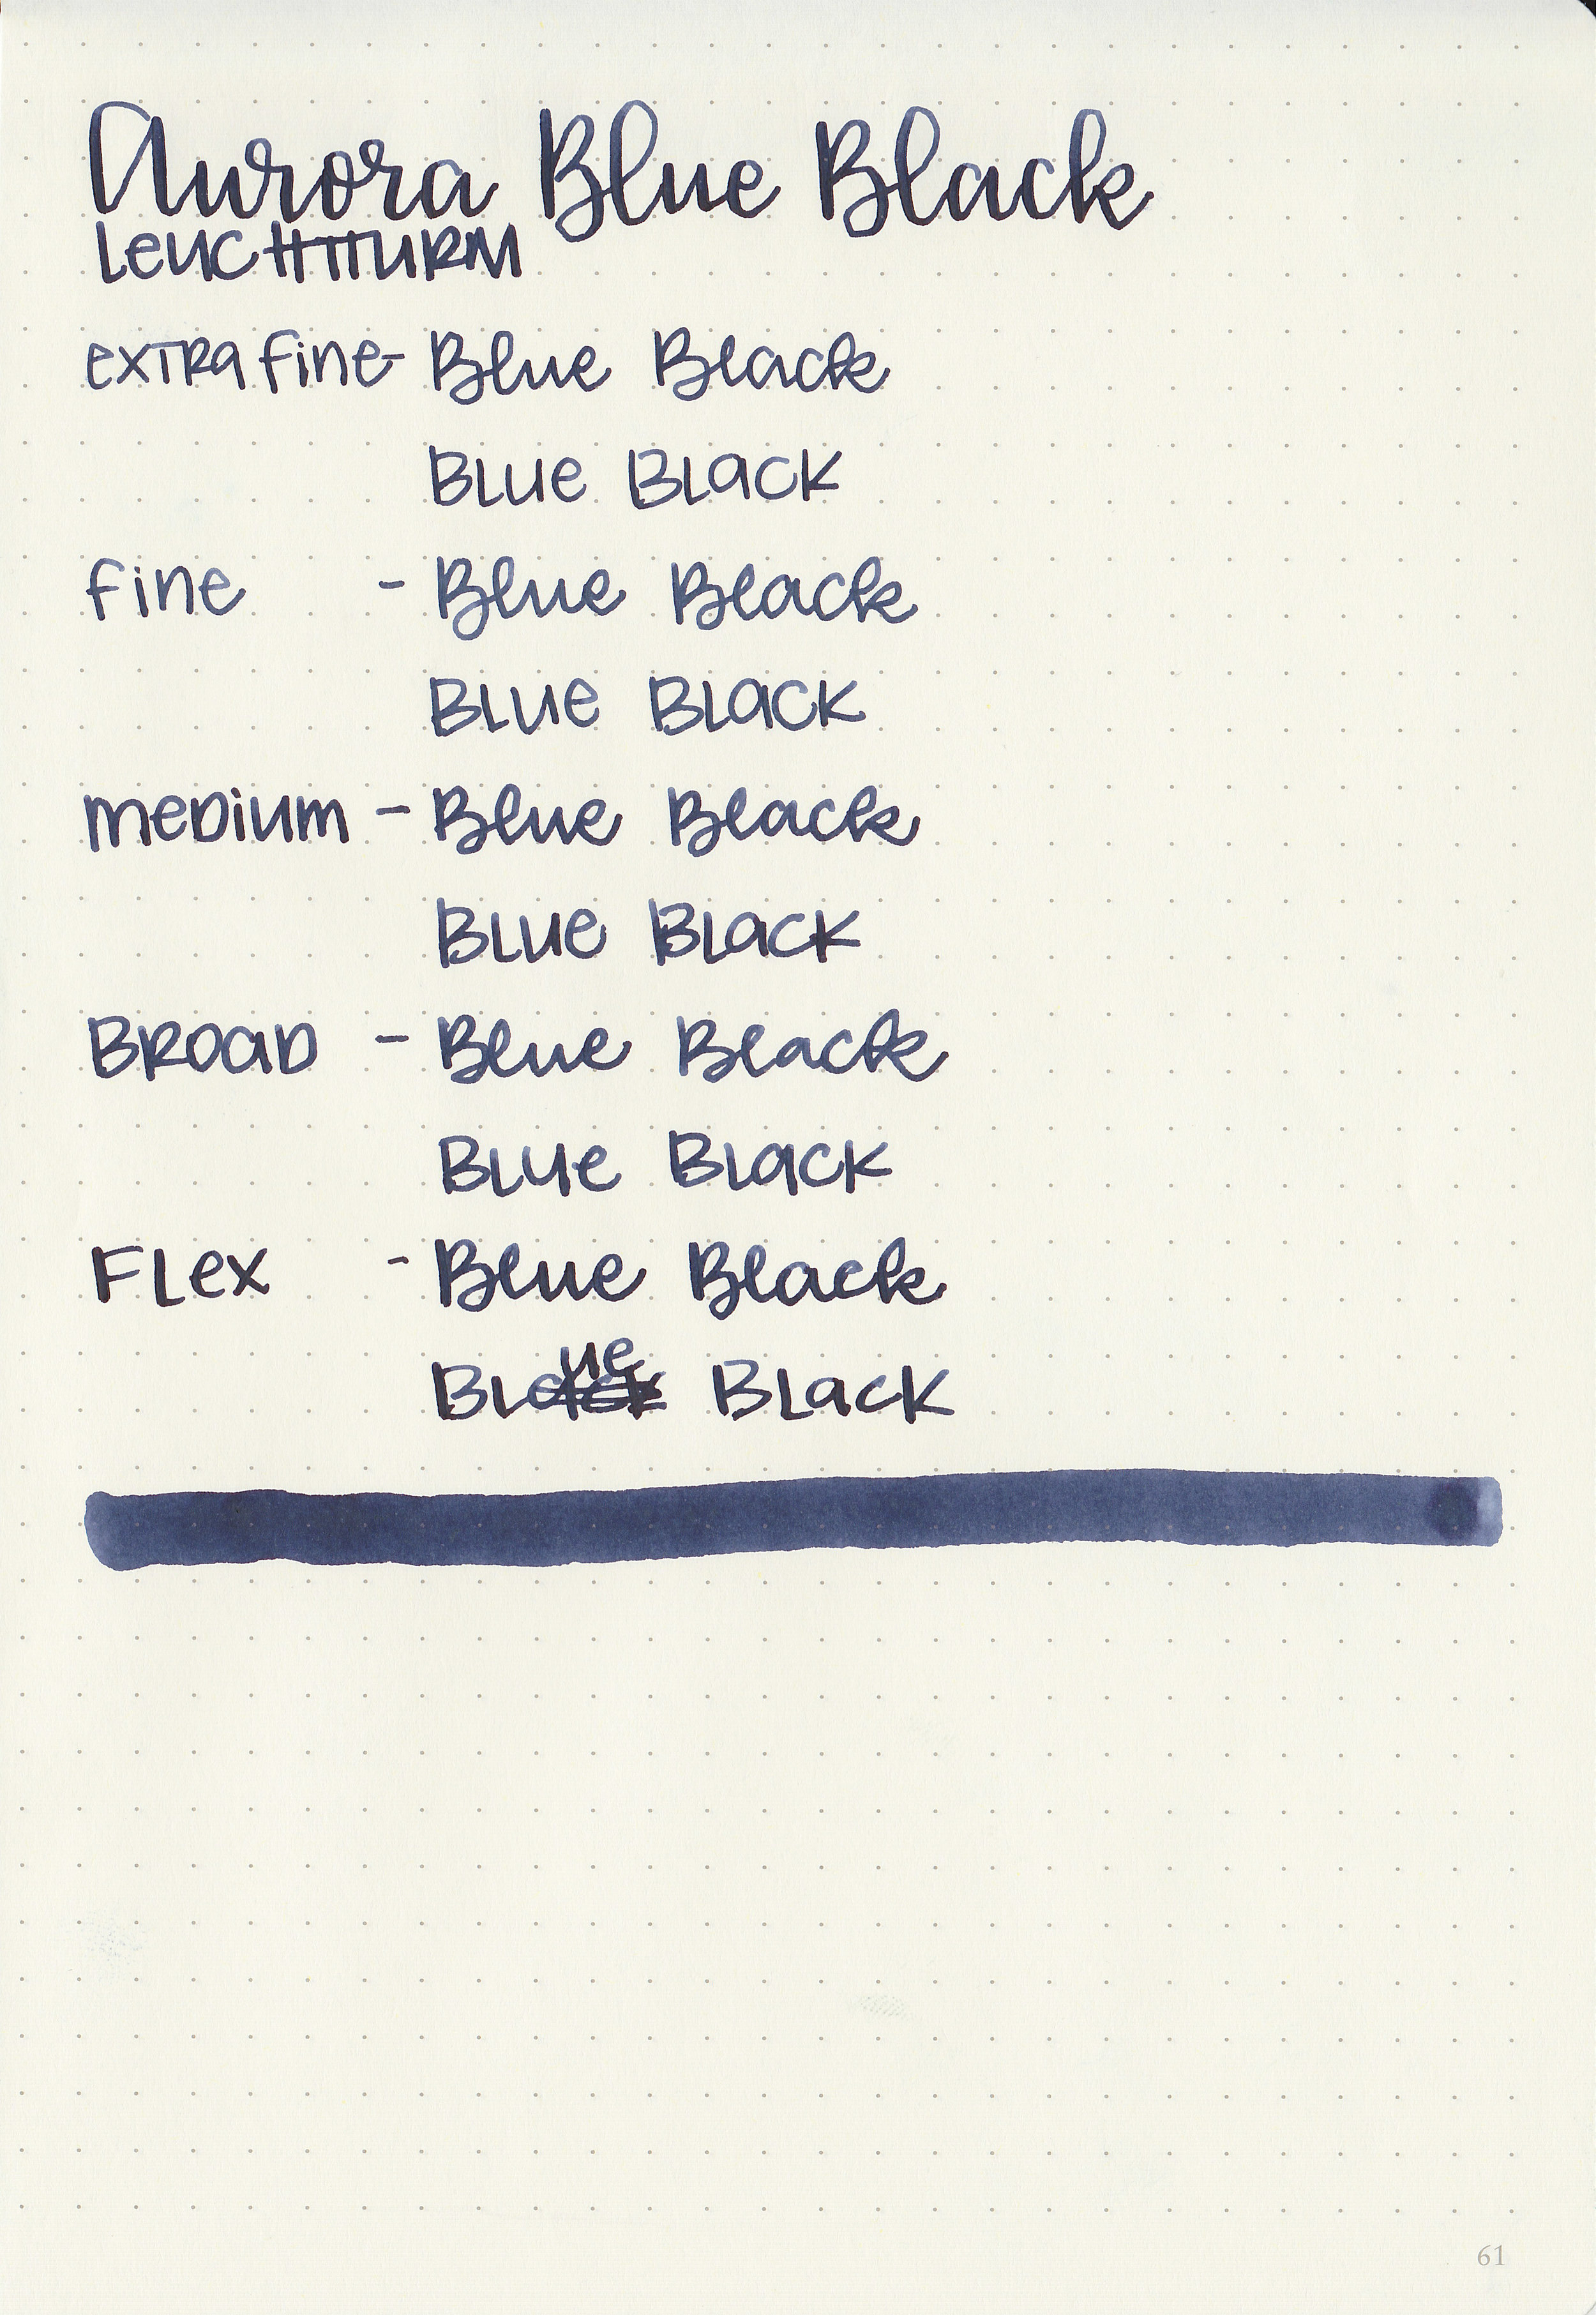 Aurora Blue Black
LeUCHTTURM
exTRa fine- Blue Black
BLUe BLacK
fine - Blue Black
BLUe BLacK
meDium - Blue Black
BLUe BLacK
BROaD - Blue Black
BLUe BLacK
FLex - Blue Black
BLue BLacK
61